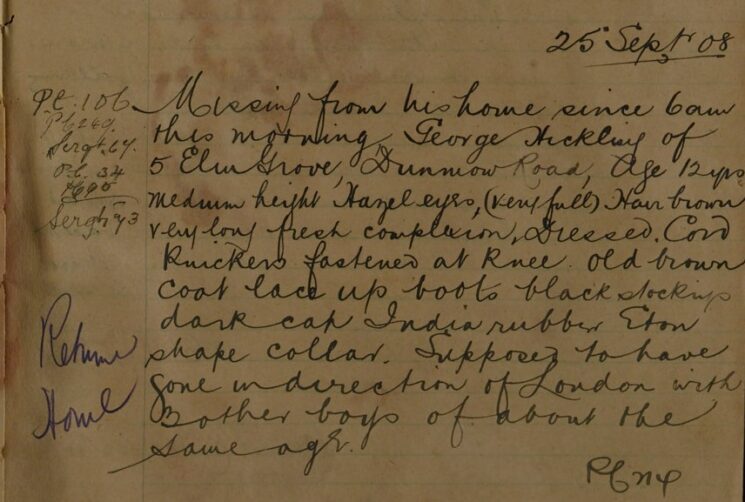 25 Sept 08
Pc. 106
Pc 249.
Sergt. 67.
P.C. 34
Sergt 93
Missing from his home since 6am
this morning George Hickling of
5 Elm Grove, Dunmow Road, Age 12 yrs
medium height Hazel eyes, (very full) Hair brown
very long fresh complexion, Dressed. Cord
Knickers fastened at Knee. old brown
coat lace up boots black stockings
dark cap India rubber Eton
shape collar. Supposed to have
gone in direction of London with
3 other boys of about the
same age.
Return
Home